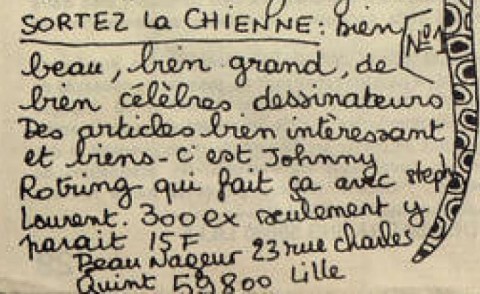 SORTEZ La CHIENNE: bien
N°1
beau, bien grand, de
bien célèbres dessinateurs
Des articles bien intéressant
et biens - c'est Johnny
Rotring qui fait ça avec steph
Laurent. 300 ex seulement y
parait 15F
Beau Nageur 23 rue charles
Quint 59800 Lille